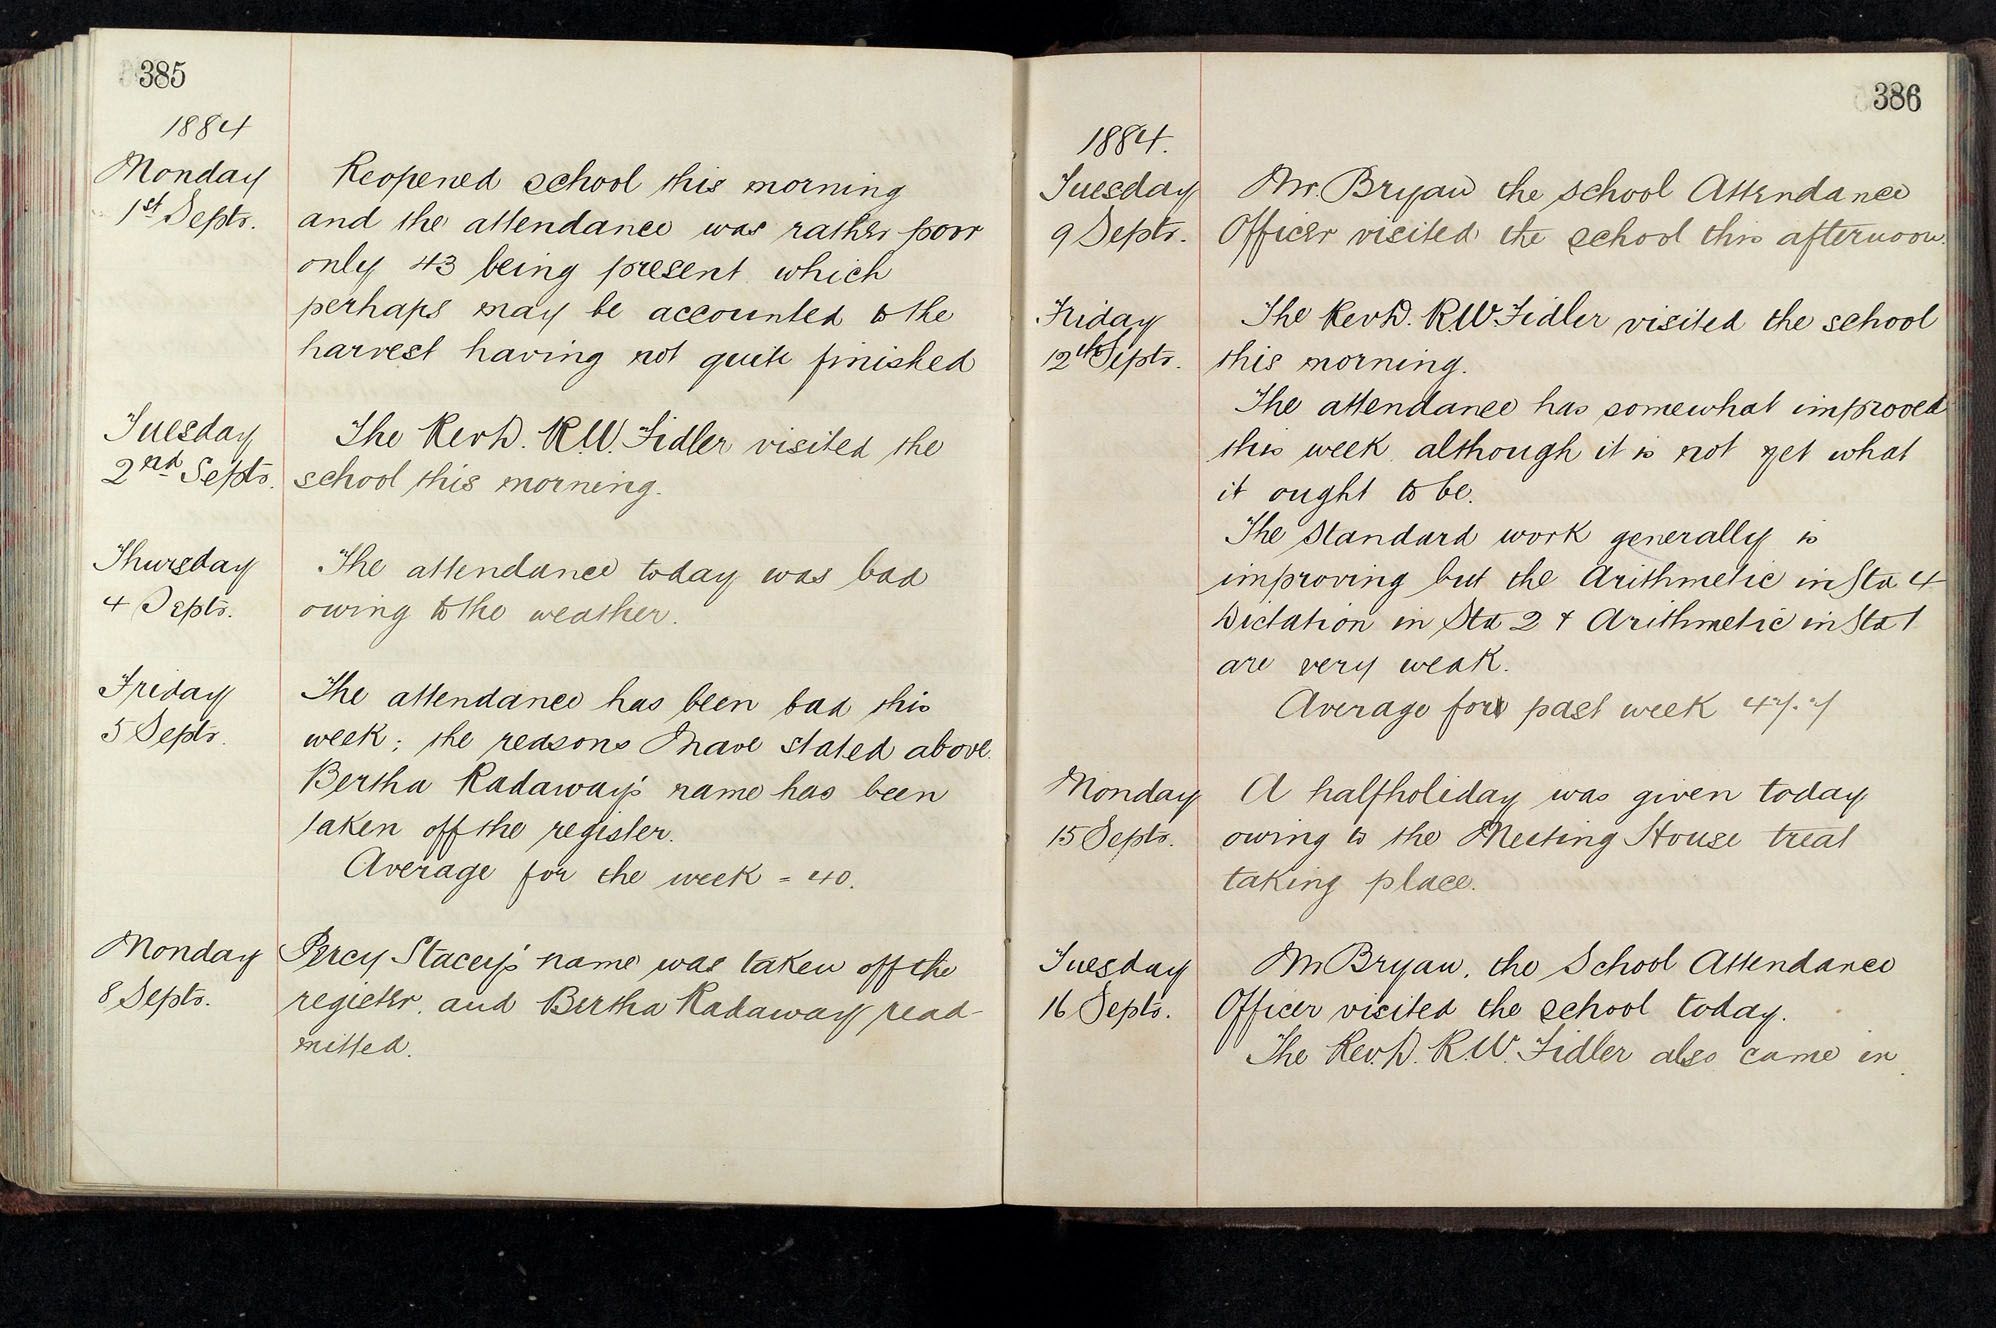 385
1884
Monday
1st Septr.
Reopened school this morning
and the attendance was rather poor
only 43 being present which
perhaps may be accounted to the
harvest having not quite finished
Tuesday
2nd Septr.
The Revd. R.W. Fidler visited the
school this morning.
Thursday
4 Septr.
The attendance today was bad
owing to the weather.
Friday
5 Septr.
The attendance has been bad this
week; the reasons I have stated above.
Bertha Radaway's name has been
taken off the register.
Average for the week = 40.
Monday
8 Septr.
Percy Stacey's name was taken off the
register, and Bertha Radaway read-
mitted.
386
1884.
Tuesday
9 Septr.
Mr. Bryan the school Attendance
Officer visited the school this afternoon.
Friday
12th Septr.
The Revd. R.W. Fidler visited the school
this morning.
The attendance has somewhat improved
this week although it is not yet what
it ought to be.
The Standard work generally is
improving but the Arithmetic in Std 4
Dictation in Std 2 & Arithmetic in Std 1
are very weak.
Average for past week 47.7
Monday
15 Septr.
A halfholiday was given today
owing to the Meeting House treat
taking place.
Tuesday
16 Septr.
Mr Bryan, the School Attendance
Officer visited the school today.
The Revd. R.W. Fidler also came in.